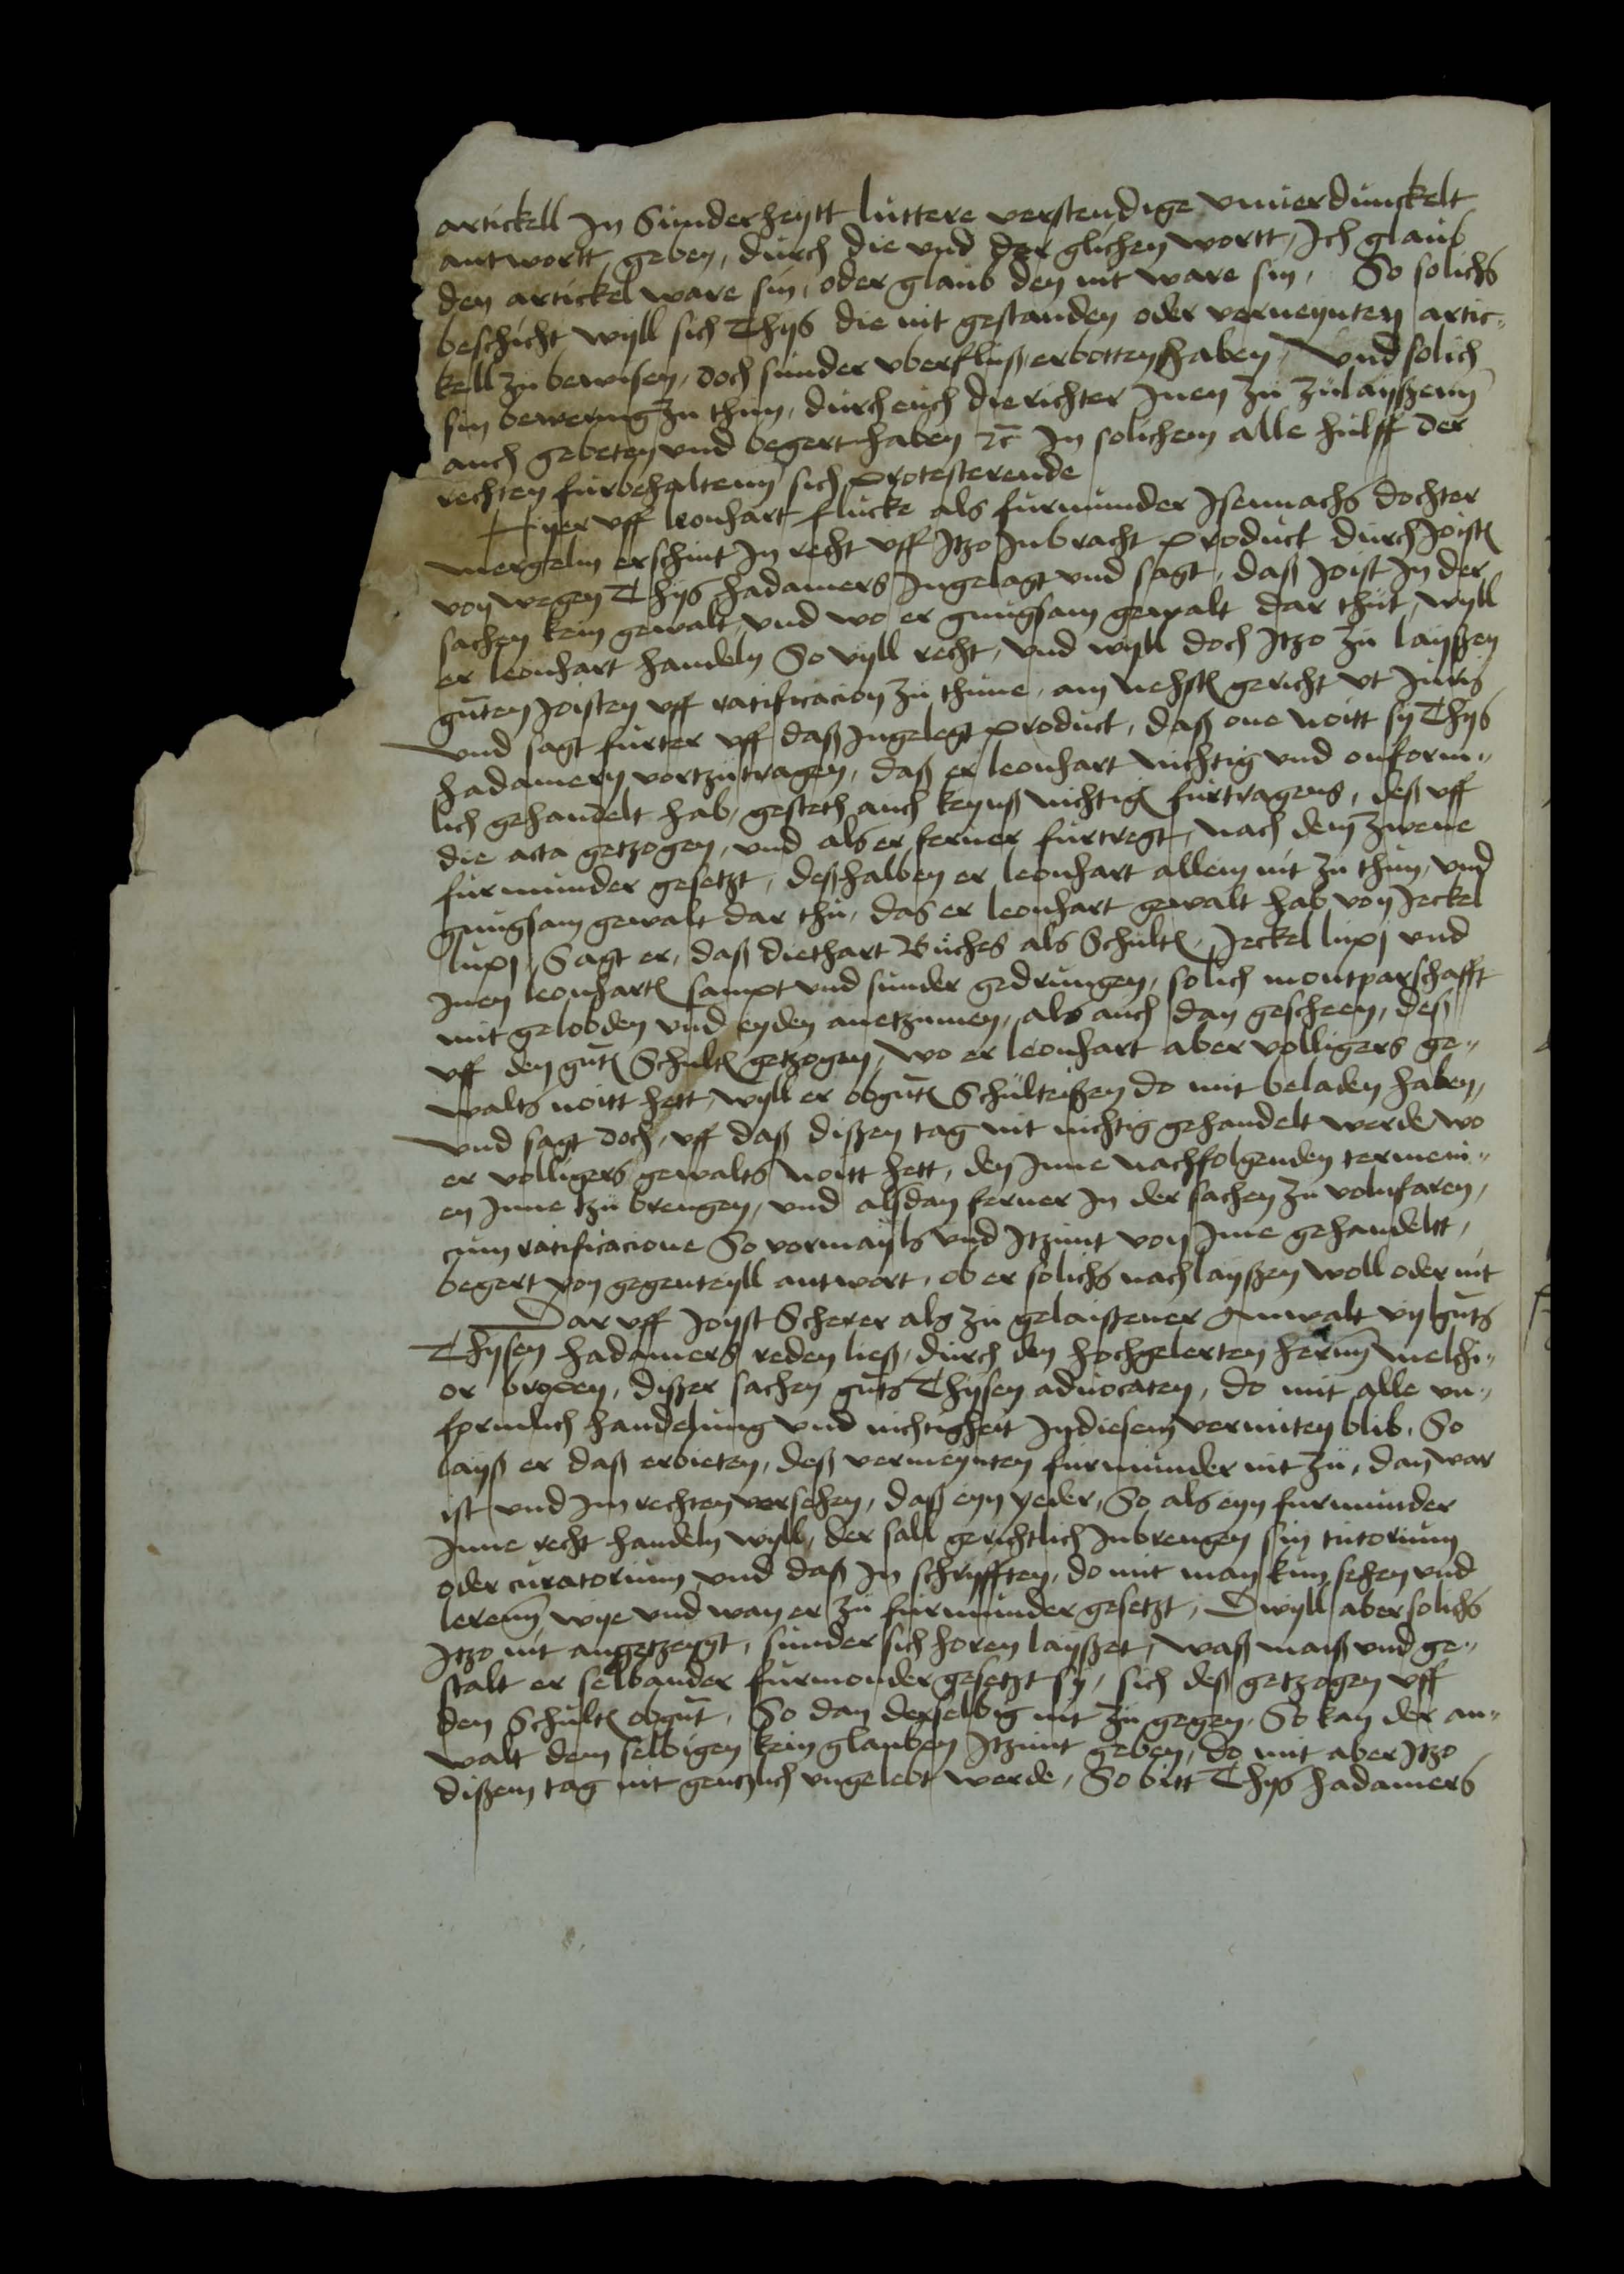 artickell In Sunderheytt luttere verstendige vnuerdunckelt
antwortt geben, durch die vnd der glichen wortt, Ich glaub
den artickel ware sin, oder glaub den nit ware sin, So solichs
beschicht wyll sich Thijs die nit gestanden oder verneynten artic-
kell zu bewisen, doch sunder vberfluß erbotten haben, Vnd solich
sin bewerung zu thun, durch euch die richter Inen zu zulayßenn
auch gebeten vnd begert haben ꝛc In solichem alle hulff der
rechten furbehaltenn sich protesterende
Hyer vff leonhart flucke als furmunder Isennachs dochter
mergeln erschint In recht vff Itzo Inbracht product durch Joisten
von wegen Thijs hadamers Ingelagt vnd sagt, daß Joist In der
sachen kein gewalt, vnd wo er gnugsam gewalt dar thut, wyll
er leonhart handeln So vyll recht, vnd wyll doch Itzo zu layßen
guten Joisten vff ratificacion zu thune, am nehsten gericht vt Juris
Vnd sagt furter vff daß Ingelegt product, daß one noitt sy Thijs
hadamern vortzutragen, daß er leonhart nichtig vnd onform-
lich gehandelt hab, gesteth auch keynß nichtigen furtragens, deß vff
die acta getzogen, vnd als er ferner furtregt, nach dem zwene
furmunder gesetzt, deßhalben er leonhart allein nit zu thun, vnd
gnugsam gewalt dar thu, das er leonhart gewalt hab von Jeckel
lupj, Sagt er, daß diethart Buches als Schulten Jeckel lupj vnd
Inen leonharten sampt vnd sunder gedrungen, solich montparschafft
mit gelobden vnd eyden anetzunien, als auch dan gescheen, deß
vff den guten Schulten getzogen, wo er leonhart aber volligers ge-
walts noitt hett, wyll er obguten Schulteißen do mit beladen haben,
Vnd sagt doch, vff daß dißen tag nit nichtig gehandelt werde, wo
er volligers gewalts noitt hett, den Inne nachfolgenden termeni-
en Inne tzu brengen, vnd alßdan ferner In der sachen zu volnfaren,
cum ratificacione So vormayls vnd Itzunt von Ime gehandeltt,
begert von gegenteyll antwort, ob er solichs nachlayßen woll oder nit
Dar vff Joyst Scherer als zu gelaißener Anwalt vylguts
Thijsen hadamers reden ließ, durch den hochgelerten hernn melchi-
or broeen, dißer sachen guts Thijsen aduocaten, do mit alle vn-
formlich handelung vnd nichtigheit In diesem vermiten blib, So
layß er daß erbieten, deß vermeynten furmunder nit zu, dan war
ist vnd Im rechten versehen, daß eyn yeder, So als eyn furmunder
Inne recht handeln wyll, der sall gerichtlich Inbrengen sin tutorium
oder curatorium vnd daß In schryfften, do mit man kun sehen vnd
lerenn wye vnd wan er zu furmunder gesetzt, Dwyll aber solichs
Itzo nit angetzeygt, sunder sich horen layßet, waß maiß vnd ge-
stalt er selbander furmonder gesetzt sy, sich deß getzogen vff
den Schulten obgut, So dan derselbig nit zu gegen, So kan der an-
walt dem selbigen kein glauben Itzunt geben, do mit aber Itzo
dißem tag nit gentzlich vngelebt werde, So bitt Thijs hadamers